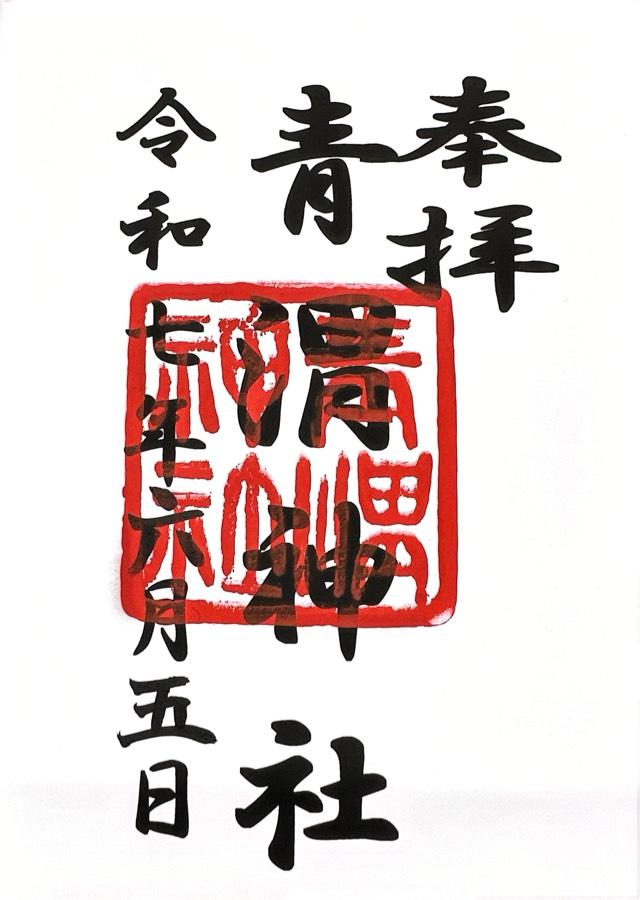 奉拝
青渭神社
青渭神社
令和七年六月五日